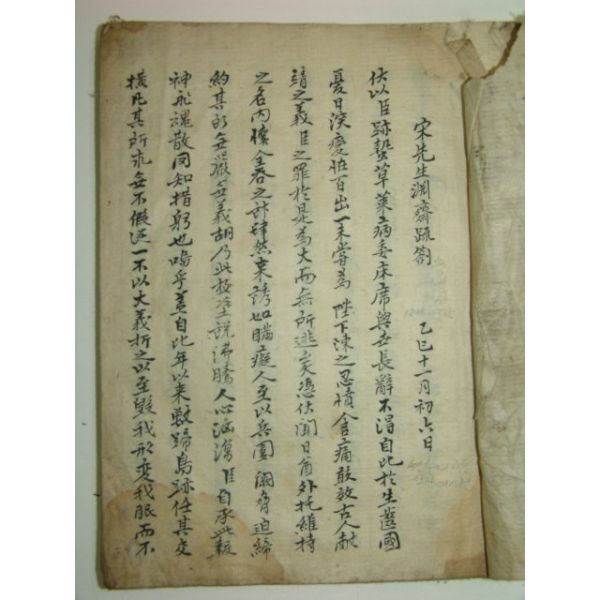 宋先生淵齋疏劄 乙巳十一月初六日
伏以臣跡蟄草萊病委床席與世長辭不得自比於生齒國
憂日深變怪百出一未嘗爲 陛下陳之忍憤含痛敢效古人献
靖之義臣之罪於是爲大而無所逃矣憑伏聞日酋外托維持
之名內懷全吞之計肆然来誘如瞞癡人至以兵圍闕脅迫締
約其所無嚴無義胡乃此極塗說沸騰人心洶洶臣自承此報
神飛魂散罔知措躬也嗚乎蓋自比年以来獸蹄鳥跡任其交
橫凡其所求無不假送一不以大義折之以至毁我形變我服而不